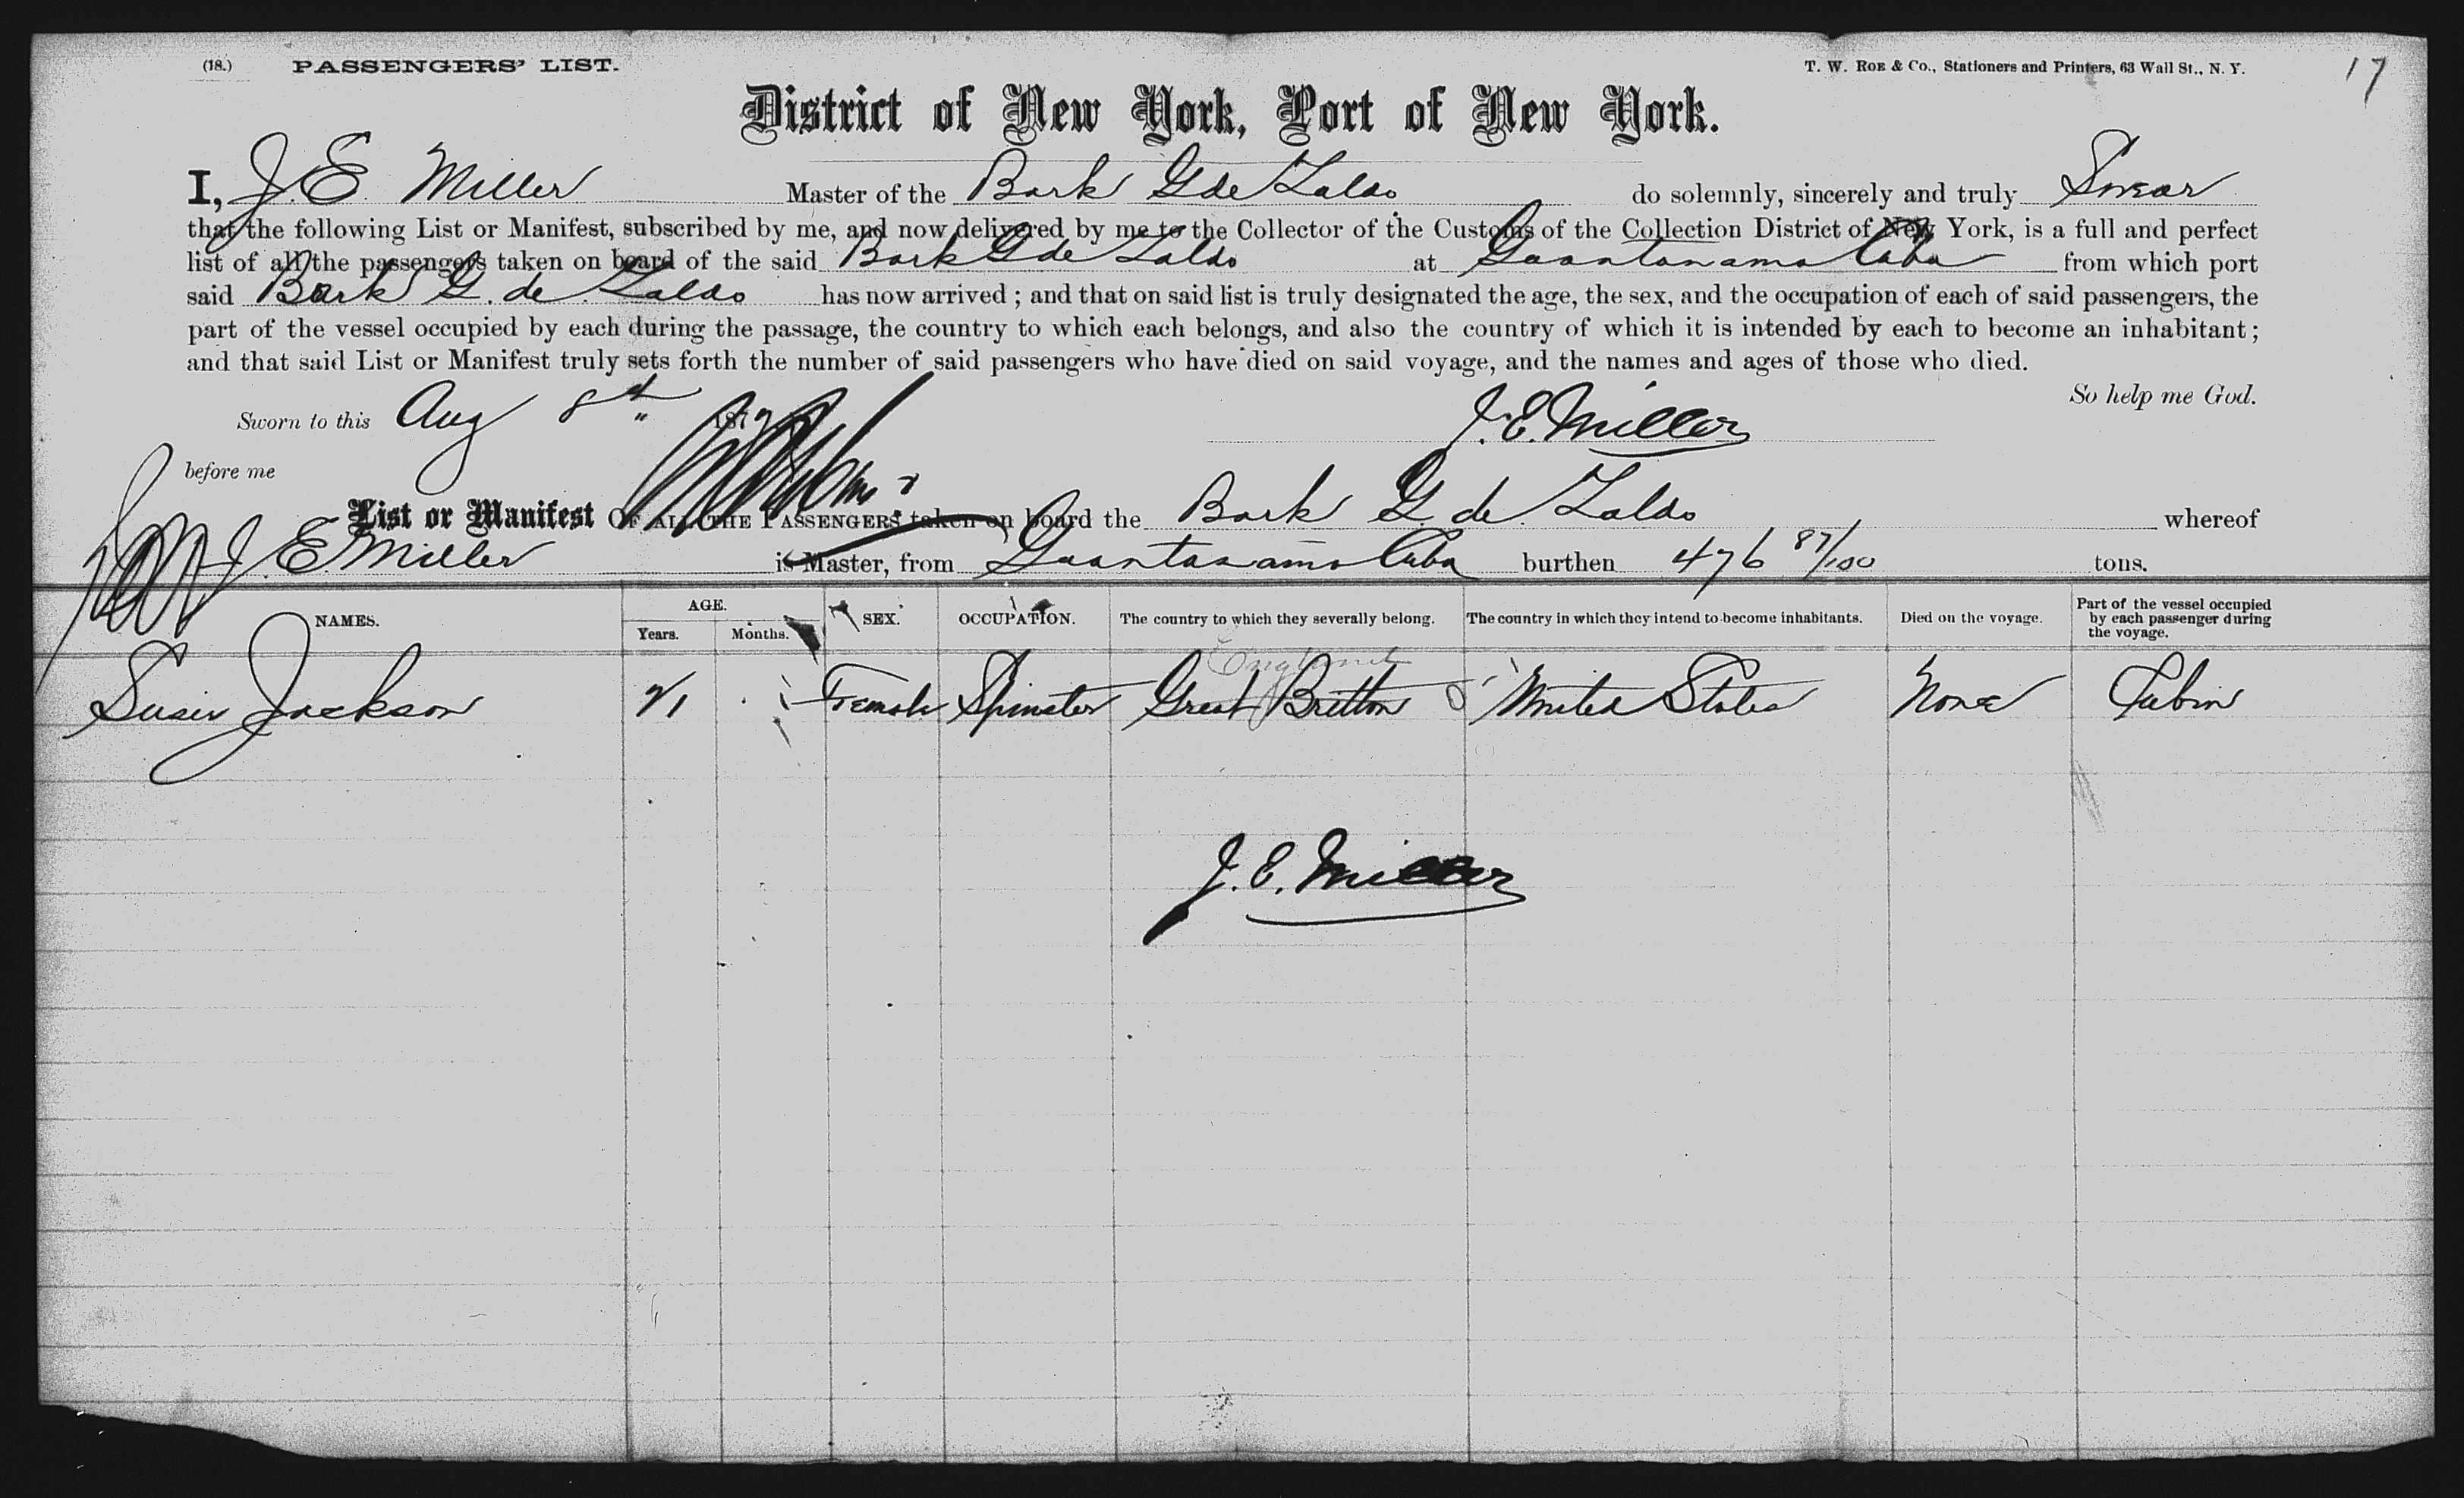 (18.) PASSENGERS' LIST. T. W. ROE & Co., Stationers and Printers, 63 Wall St., N. Y. 17
District of New York, Port of New York.
I, J. E. Miller Master of the Bark G de Zaldo do solemnly, sincerely and truly Swear
that the following List or Manifest, subscribed by me, and now delivered by me to the Collector of the Customs of the Collection District of New York, is a full and perfect
list of all the passengers taken on board of the said Bark G de Zaldo at Guantanamo Cuba from which port
said Bark G. de. Zaldo has now arrived; and that on said list is truly designated the age, the sex, and the occupation of each of said passengers, the
part of the vessel occupied by each during the passage, the country to which each belongs, and also the country of which it is intended by each to become an inhabitant;
and that said List or Manifest truly sets forth the number of said passengers who have died on said voyage, and the names and ages of those who died.
So help me God.
Sworn to this Aug 8th 187
J. E. Miller
before me
List or Manifest OF ALL THE PASSENGERS taken on board the Bark G. de. Zaldo whereof
J. E. Miller is Master, from Guantanamo Cuba burthen 476 87/100 tons.
NAMES. AGE. Years. Months. SEX. OCCUPATION. The country to which they severally belong. The country in which they intend to become inhabitants. Died on the voyage. Part of the vessel occupied by each passenger during the voyage.
England
Susie Jackson 21 Female Spinster Great Britton United States None Cabin
J. E. Miller